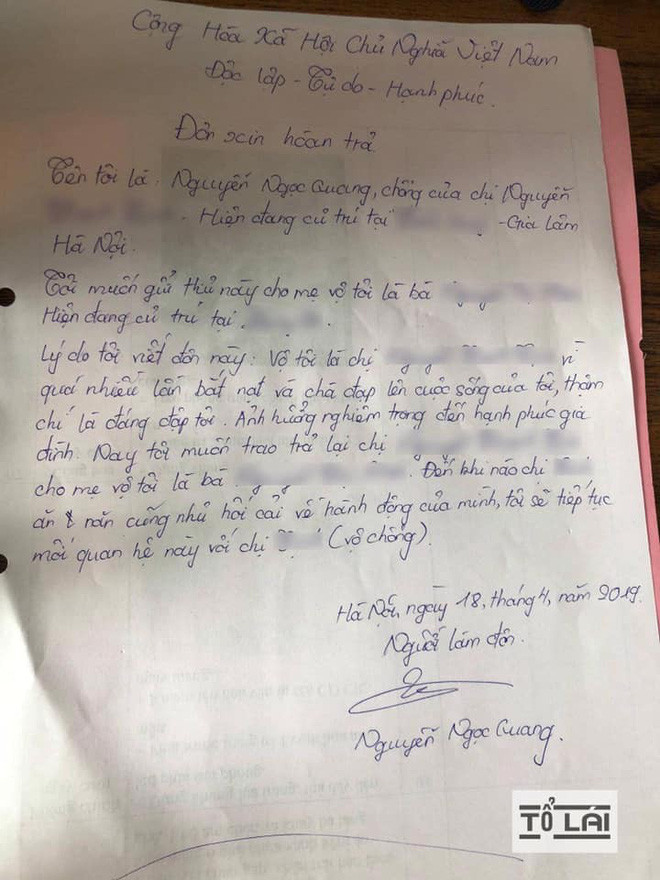 Cộng Hòa Xã Hội Chủ Nghĩa Việt Nam
Độc lập - Tự do - Hạnh phúc.
Đơn xin hoàn trả
Tên tôi là. Nguyễn Ngọc Quang, chồng của chị Nguyễn
- Hiện đang cư trú tại - Gia Lâm
Hà Nội.
Tôi muốn gửi thư này cho mẹ vợ tôi là bà
Hiện đang cư trú tại
Lý do tôi viết đơn này: Vợ tôi là chị vì
quá nhiều lần bắt nạt và chà đạp lên cuộc sống của tôi, thậm
chí là đáng đập tôi. Ảnh hưởng nghiêm trọng đến hạnh phúc gia
đình. Nay tôi muốn trao trả lại chị
cho mẹ vợ tôi là bà . Đến khi nào chị
ăn năn cũng như hối cải về hành động của mình, tôi sẽ tiếp tục
mối quan hệ này với chị (vợ chồng).
Hà Nội, ngày 18, tháng 4, năm 2019.
Người làm đơn.
Nguyễn Ngọc Quang.
TỔ LÁI